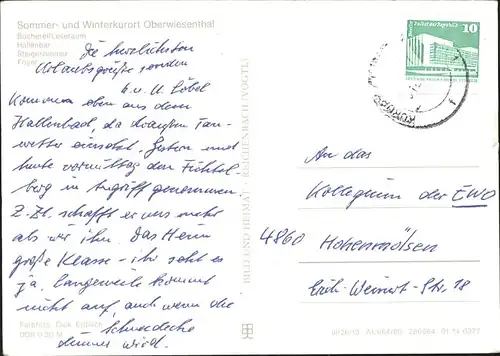 Sommer- und Winterkurort Oberwiesenthal
Bücherei/Leseraum
Hallenbar
Steigerzimmer
Foyer
Die herzlichsten
Urlaubsgrüße senden
u. U. Löbel
Kommen eben aus dem
Hallenbad, da draußen Tau-
wetter einsetzt. Gestern und
heute vormittag den Fichtel-
berg in Angriff genommen.
Z. Zt. schafft er uns mehr
als wir ihn. Das Heim
große Klasse - ihr seht es
ja. Langeweile kommt
nicht auf, auch wenn die
Schneedecke
dünner wird.
Farbfoto: Dick, Erlbach
DDR 0,20 M
BILD UND HEIMAT REICHENBACH (VOGTL)
10
An das
Kollegium der EWO
4860 Hohenmölsen
Erich-Weinert-Str. 18